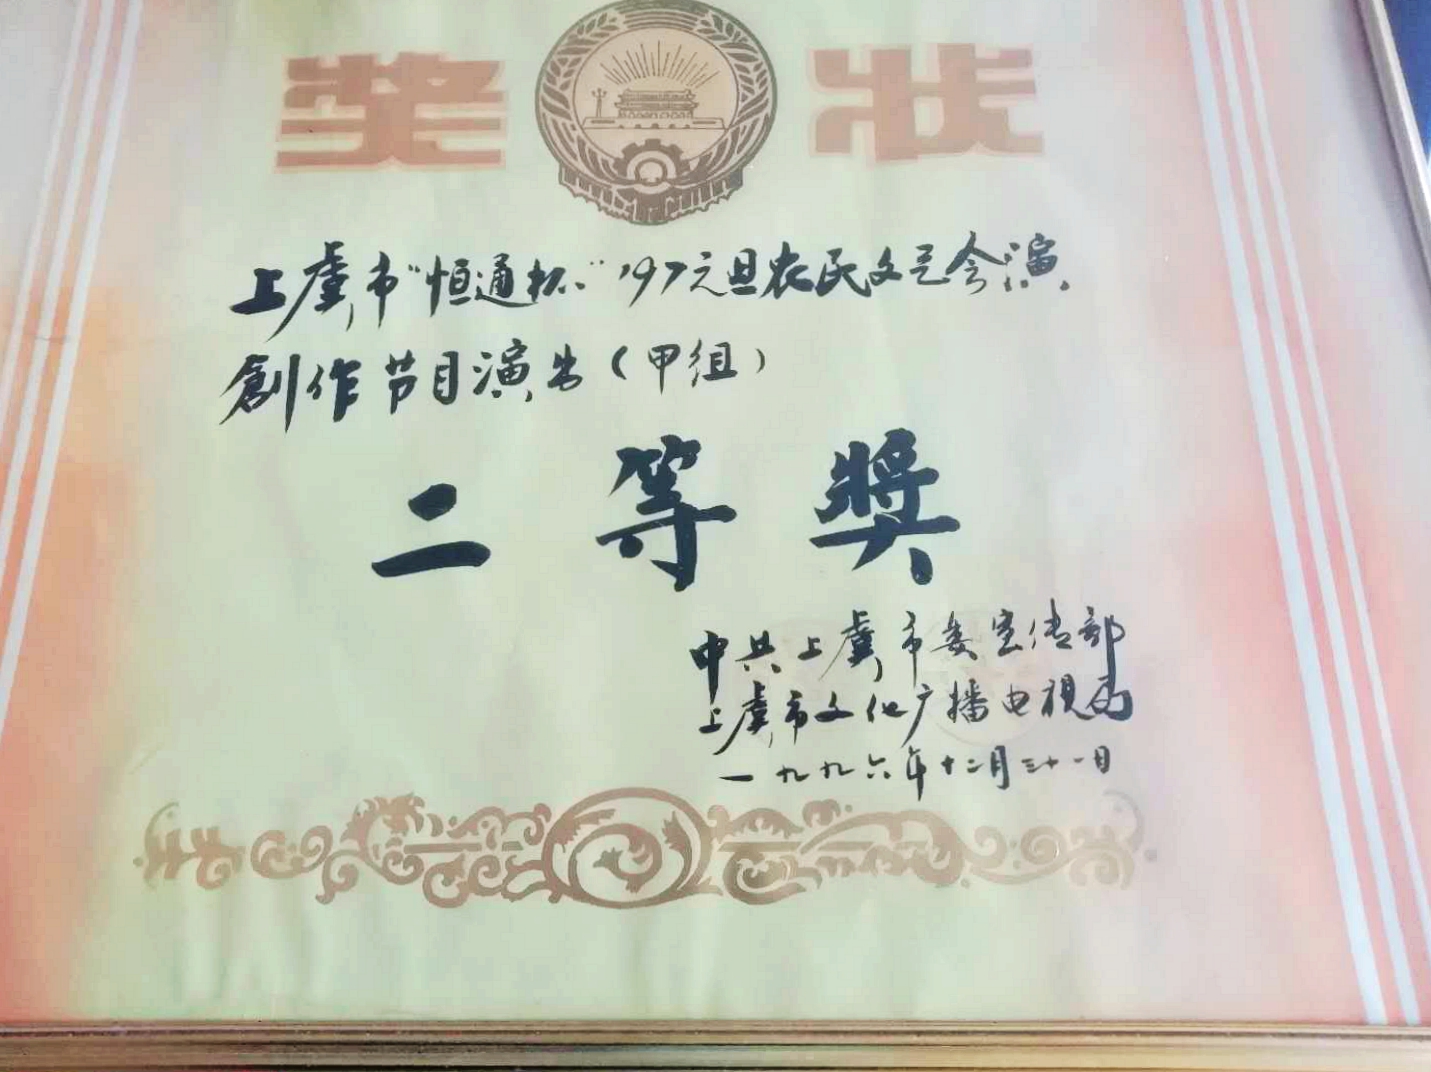 奖状
上虞市“恒通杯”'97元旦农民文艺会演
創作节目演出（甲组）
二等獎
中共上虞市委宣传部
上虞市文化广播电视局
一九九六年十二月三十一日